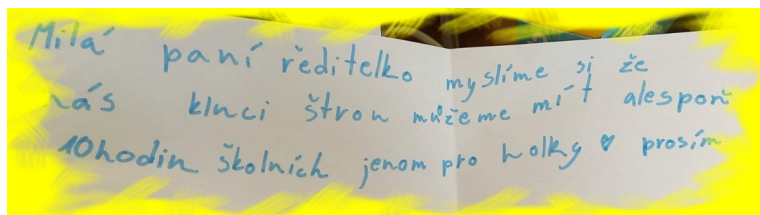 Milá paní ředitelko myslíme si že
nás kluci štvou můžeme mít alespoň
10hodin školních jenom pro holky ♥ prosím